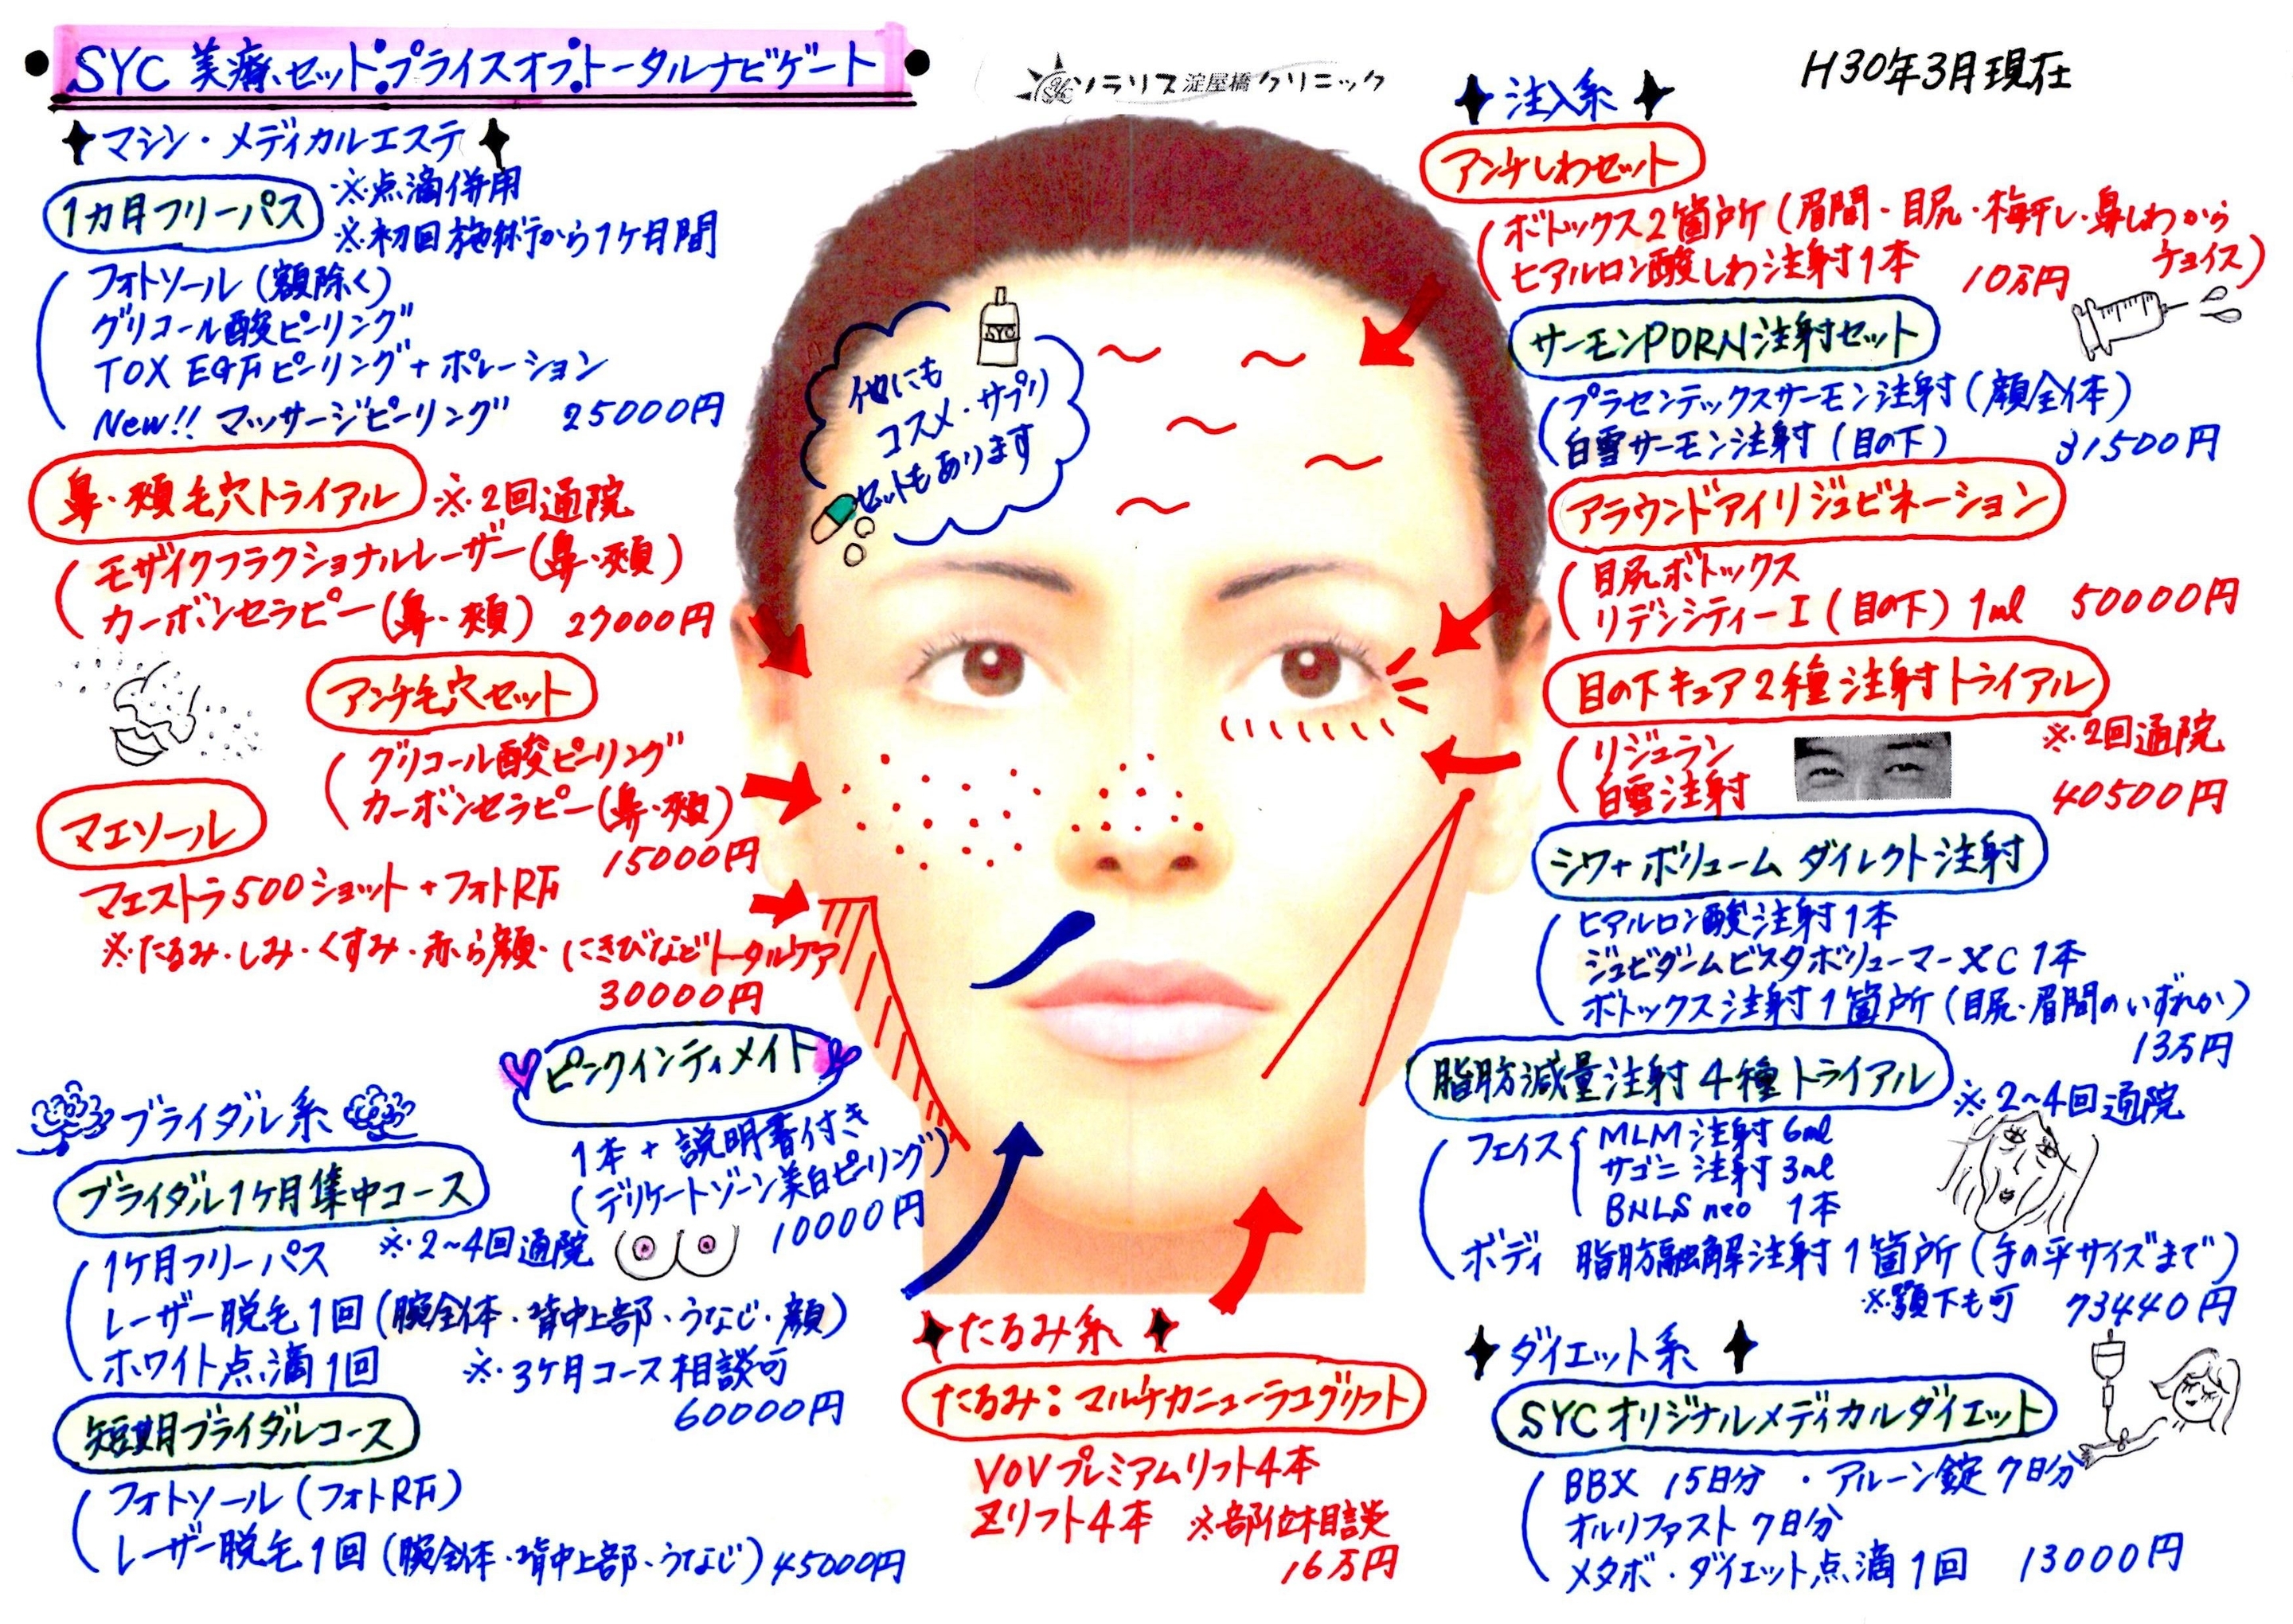 SYC 美療セット:プライスオブトータルナビゲート
ソラリス淀屋橋クリニック
H30年3月現在
マシン・メディカルエステ
1カ月フリーパス
※点滴併用
※初回施術から1ケ月間
フォトソール(額除く)
グリコール酸ピーリング
TOX EGFピーリング+ポレーション
New!! マッサージピーリング 25000円
鼻・頬毛穴トライアル ※2回通院
モザイクフラクショナルレーザー(鼻・頬)
カーボンセラピー(鼻・頬) 27000円
アンチ毛穴セット
グリコール酸ピーリング
カーボンセラピー(鼻・頬)
15000円
マエソール
マエストラ500ショット+フォトRF
※たるみ・しみ・くすみ・赤ら顔・にきびなどトータルケア
30000円
ピンクインティメイト
1本+説明書付き
(デリケートゾーン美白ピーリング)
10000円
ブライダル系
ブライダル1ケ月集中コース
※2~4回通院
1ケ月フリーパス
レーザー脱毛1回(腕全体・背中上部・うなじ・顔)
ホワイト点滴1回 ※3ケ月コース相談可
60000円
短期ブライダルコース
フォトソール(フォトRF)
レーザー脱毛1回(腕全体・背中上部・うなじ) 45000円
SYC
他にも
コスメ・サプリ
セットもあります
たるみ系
たるみ:マルチカニューラコグリフト
VOVプレミアムリフト4本
Zリフト4本 ※部位相談
16万円
注入系
アンチしわセット
ボトックス2箇所(眉間・目尻・梅干し・鼻しわから
チョイス)
ヒアルロン酸しわ注射1本 10万円
サーモンPDRN注射セット
プラセンテックスサーモン注射(顔全体)
白雪サーモン注射(目の下) 31500円
アラウンドアイリジュビネーション
目尻ボトックス
リデンシティーI(目の下)1ml 50000円
目の下キュア2種注射トライアル
※2回通院
リジュラン
白雪注射
40500円
シワ+ボリューム ダイレクト注射
ヒアルロン酸注射1本
ジュビダームビスタボリューマーXC 1本
ボトックス注射1箇所(目尻・眉間のいずれか)
13万円
脂肪減量注射4種トライアル
※2~4回通院
フェイス
MLM注射6ml
サゴニ注射3ml
BNLS neo 1本
ボディ 脂肪融解注射1箇所(手の平サイズまで)
※顎下も可 73440円
ダイエット系
SYCオリジナルメディカルダイエット
BBX 15日分・アルーン錠7日分
オルリファスト7日分
メタボ・ダイエット点滴1回 13000円